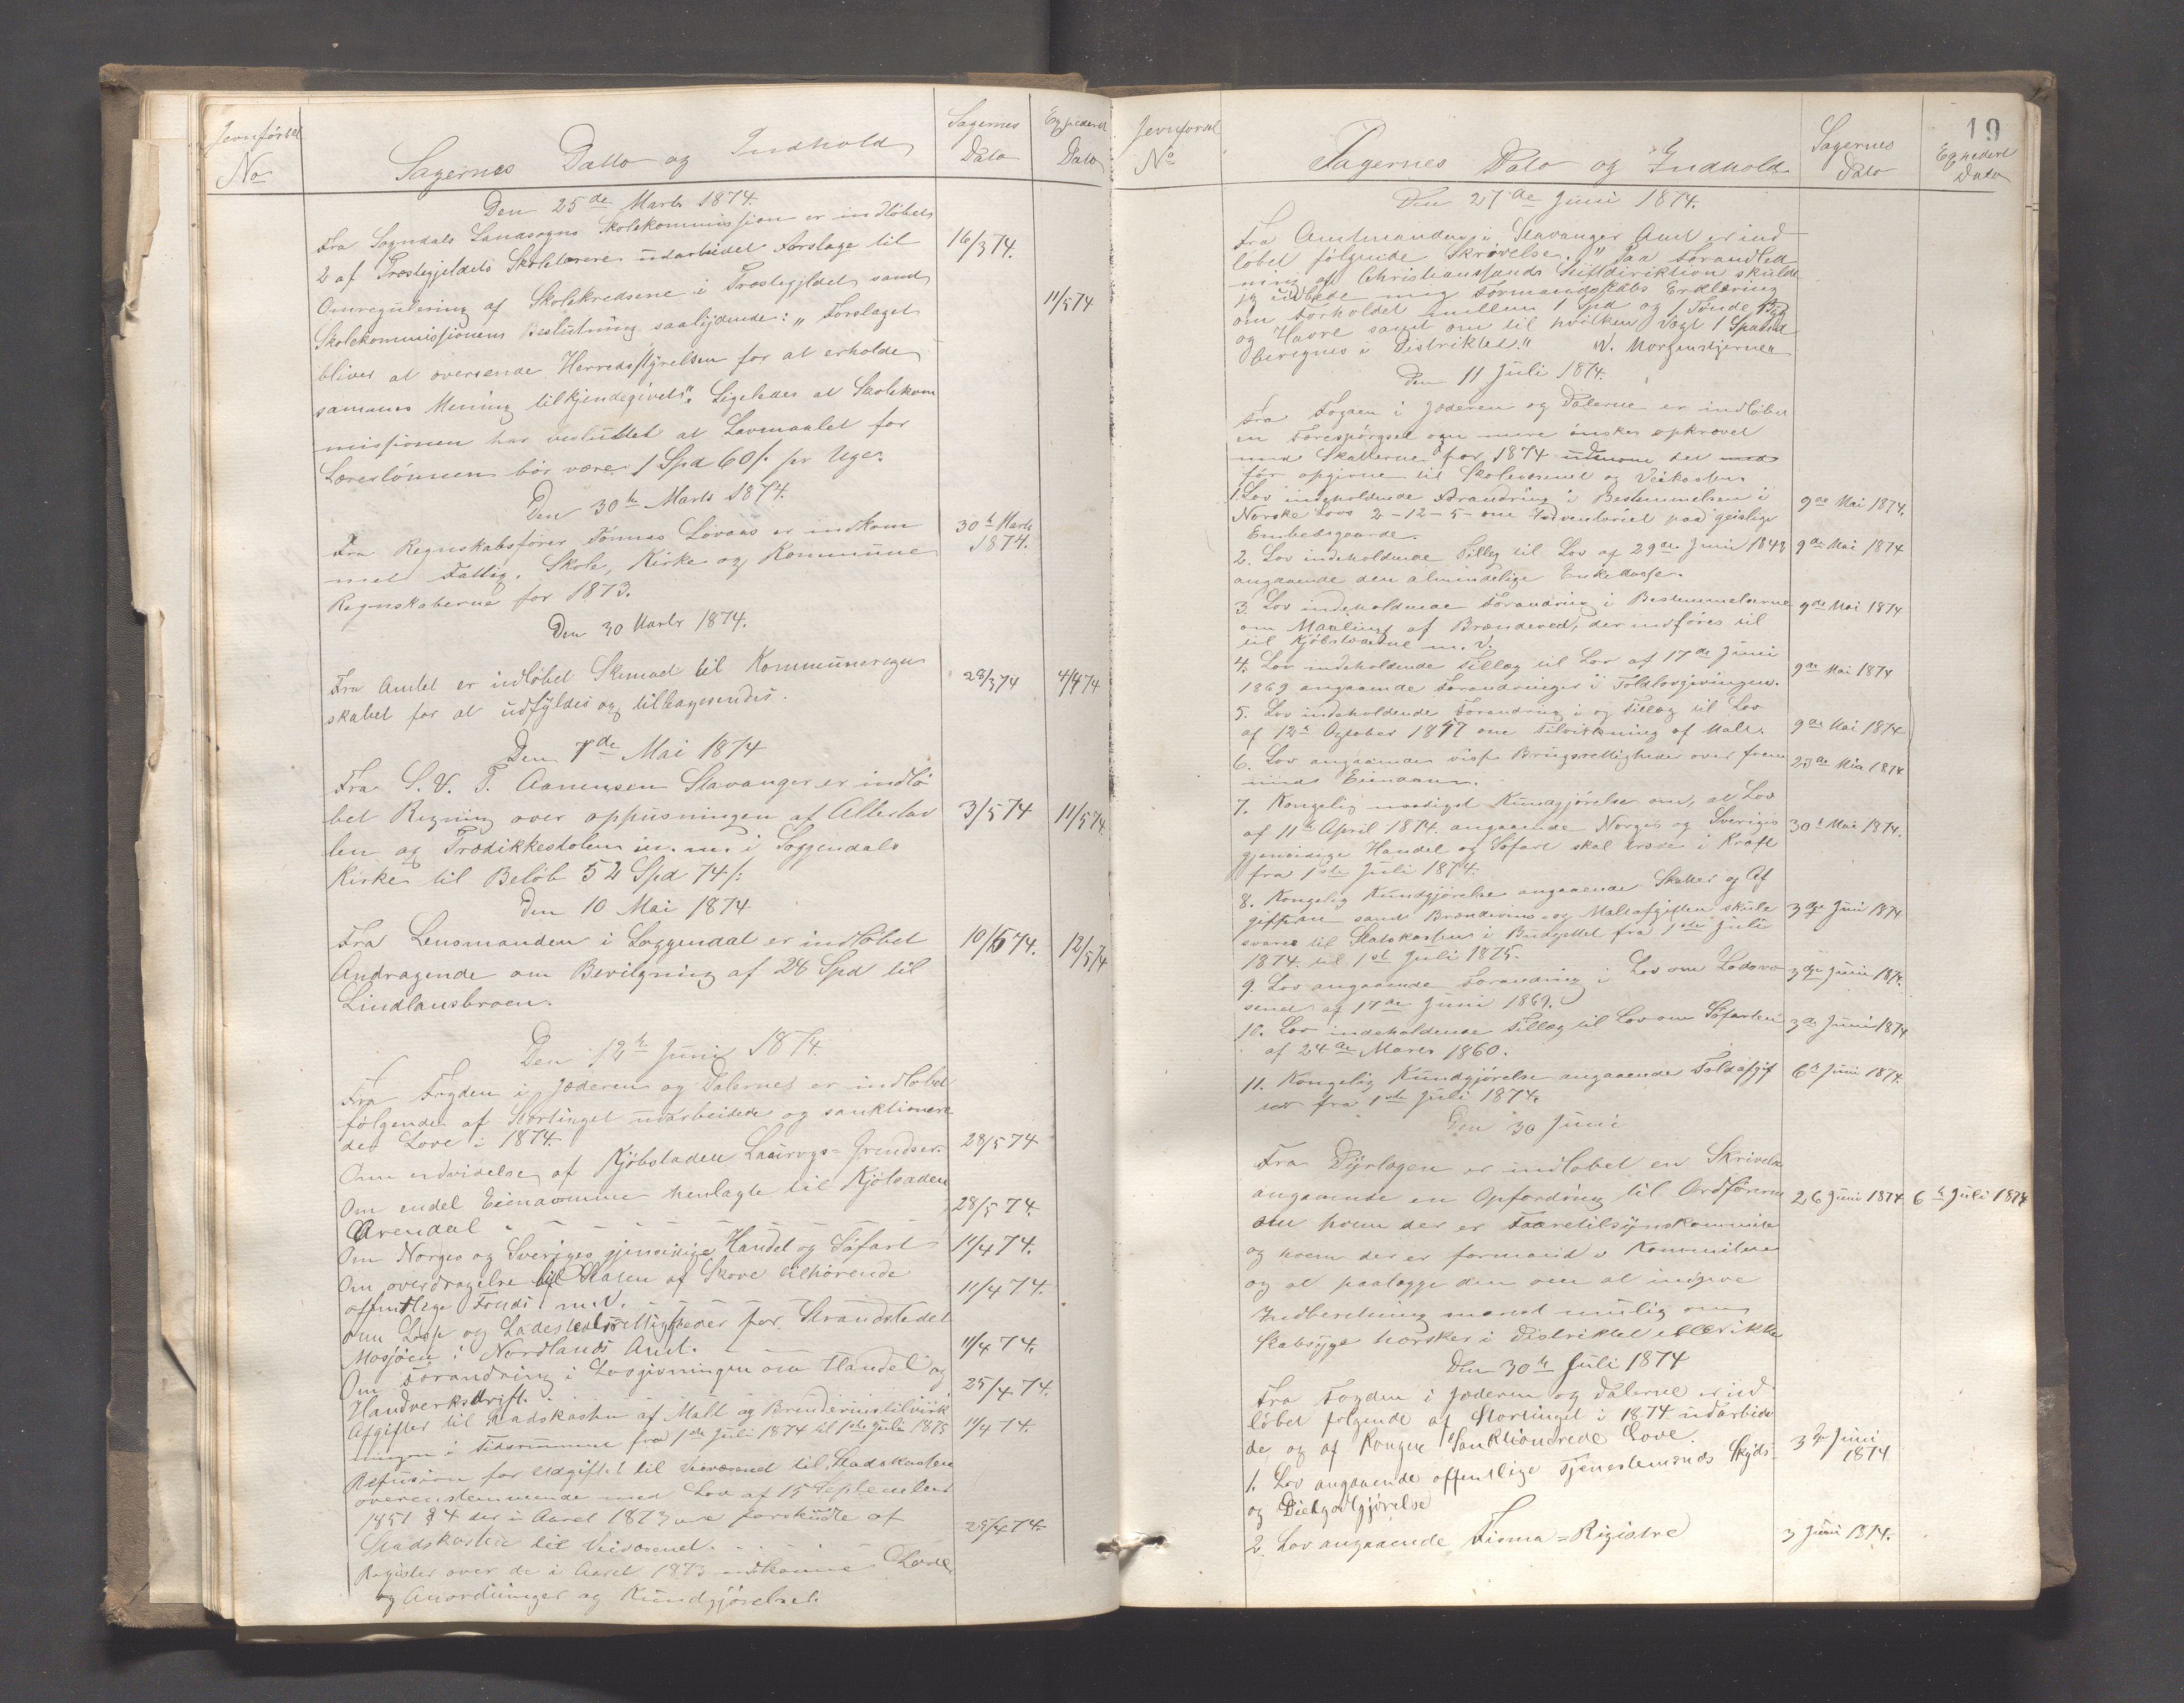 Jevnførsel
No
Sagernes Datto og Indhold
Sagernes
Dato
Expederet
Dato
Den 25de Marts 1874.
Fra Sogndals Landsogns Skolekommission er indløbet
2 af Præstegjeldets Skolelærere udarbeidet Forslage til
16/3 74.
Omregulering af Skolekredsene i Præstegjeldet samt
11/5 74
Skolekommissionens Beslutning saalydende: „ Forslaget
bliver at oversende Herredsstyrelsen for at erholde
sammes Mening tilkjendegivet". Ligeledes at Skolekom
missionen har besluttet at Lavmaalet for
Lærerlønnen bør være 1 Spd 60 ß. pr Uge.
Den 30te Marts 1874.
Fra Regnskabsfører Tønnes Lovaas er indkom
30te Marts
1874.
met Fattig, Skole, Kirke og Kommune
Regnskaberne for 1873.
Den 30 Marts 1874.
Fra Amtet er indløbet Skemaet til Kommuneregn
28/3 74
4/4 74
skabet for at udfyldes og tilbagesendes.
Den 7de Mai 1874
Fra S. V. T. Aanensen Stavanger er indlø
bet Regning over oppusningen af Altertav
3/5 74
11/5 74.
len og Prædikkestolen m. m. i Soggendals
Kirke til Beløb 52 Spd 74 ß:
Den 10 Mai 1874
Fra Lensmanden i Soggendal er indløbet
10/5 74.
12/5 74
Andragende om Bevilgning af 28 Spd til
Lindlansbroen.
Den 12te Juni 1874.
Fra Fogden i Jæderen og Dalernes er indløbet
følgende af Stortinget udarbeidede og sanktionere
des Love i 1874.
Om udvidelse af Kjøbstaden Laurvigs= Grendser.
28/5 74
Om endel Eiendomme henlagte til Kjøbstaden
Arendal
28/5 74.
Om Norges og Sveriges gjensidige Handel og Søfart
11/4 74.
Om overdragelse til Staten af Skove tilhørende
offentlege Fonds m. v.
11/4 74.
Om Losse og Ladestedsrettigheder for Strandstedet
Mosjøen i Nordlands Amt.
11/4 74.
Om Forandring i Lovgivningen om Handel og
Handverksdrift.
25/4 74.
Afgifter til Stadskassen af Malt og Brændevinstilvirk
ningen i Tidsrummet fra 1ste Juli 1874 til 1ste Juli 1875
11/4 74.
Refusion for Udgiftet til Veivæsenet til Stadskassen
overenstemmende med Lov af 15 September
1851 § 4 der i Aaret 1873 ere forskudte af
Stadskassen til Veivæsenet.
25/4 74.
Register over de i Aaret 1873 udkomne Love
og Anordninger og Kundgjørelser.
19
Jevnførsel
No
Sagernes Dato og Indhold
Sagernes
Dato
Expedert
Dato
Den 27de Juni 1874.
Fra Amtmanden i Stavanger Amt er ind
løbet følgende Skrivelse. „ Paa Foranled
ning af Christianssands Stiftdirektion skulde
jeg udbede mig Formandskabs Erklæring
om Forholdet mellem 1 Spd og 1 Tønde Byg
og Havre samt om til hvilken Vægt 1 Spand
beregnes i Distriktet." W. Morgenstjerne
Den 11 Juli 1874.
Fra Fogden i Jæderen og Dalerne er indløbet
en Forespørgsel om mere ønskes opkrævet
med Skatterne for 1874 udenom det
før opgivne til Skolevæsenet og Veikassen.
1. Lov indeholdende Forandring i Bestemmelsen i
Norske Lovs 2-12-5- om Inventariet paa geislige
9de Mai 1874.
Embedsgaarde.
2. Lov indeholdende Tilleg til Lov af 29de Juni 1848
9de Mai 1874
angaaende den almindelige Enkekasse.
3. Lov indeholdende Forandring i Bestemmelserne
9de Mai 1874
om Maaling af Brændeved, der indføres til
til Kjøbstæderne m. v.
4. Lov indeholdende Tillæg til Lov af 17de Juni
9de Mai 1874
1869 angaaende Forandringer i Toldlovgivningen.
5. Lov indeholdende Forandring i og Tillæg til Lov
af 12te October 1857 om Tilvirkning af Malt.
9de Mai 1874
6. Lov angaaende visse Brugsrettigheder over frem
23de Mia 1874
meds Eiendom.
7. Kongelig naadigst Kundgjørelse om, at Lov
af 11te April 1874. angaaende Norges og Sveriges
30te Mai 1874.
gjensidige Handel og Søfart skal træde i Kraft
fra 1ste Juli 1874.
8. Kongelig Kundgjørelse angaaende Skatter og Af
gifterne samt Brændevins- og Maltafgiften skule
3de Juni 1874
svares til Statskassen i Budgettet fra 1ste Juli
1874. til 1ste Juli 1875.
9. Lov angaaende Forandring i Lov om Lodsvæ
3de Juni 1874.
senet af 17de Juni 1869.
10. Lov indeholdende Tillæg til Lov om Søfarten
3de Juni 1874
af 24de Marts 1860.
11. Kongelig Kundgjørelse angaaende Toldafgif
6te Juni 1874.
ter fra 1ste Juli 1874.
Den 30 Juni
Fra Dyrlægen er indløbet en Skrivelse
angaaende en Opfordring til Ordføreren
26 Juni 1874
6te Juli 1874
om hvem der er Faaretilsynskommitee
og hvem der er formand i Kommiteen
og at paalægge den om at indgive
Indberetning snarest mulig om
Skabsyge hersker i Distriktet eller ikke
Den 30te Juli 1874
Fra Fogden i Jæderen og Dalerne er ind
løbet følgende af Stortinget i 1874 udarbide
de og af Kongen Sanktionerede Love.
3de Juni
1874
1. Lov angaaende offentlige Tjenestemænds Skyds
og Dietgodtgjørelse
2. Lov angaaende Firma=Registre
3 Juni 1874.